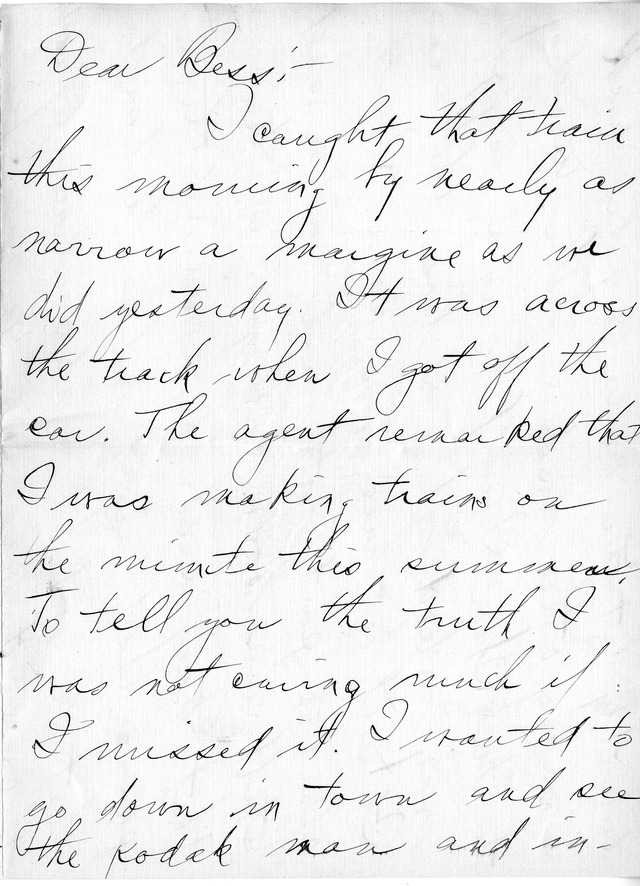 Dear Bess:-
I caught that train
this morning by nearly as
narrow a margine as we
did yesterday. It was across
the track when I got off the
car. The agent remarked that
I was making trains on
the minute this summer.
To tell you the truth I
was not caring much if
I missed it. I wanted to
go down in town and see
the kodak man and in-